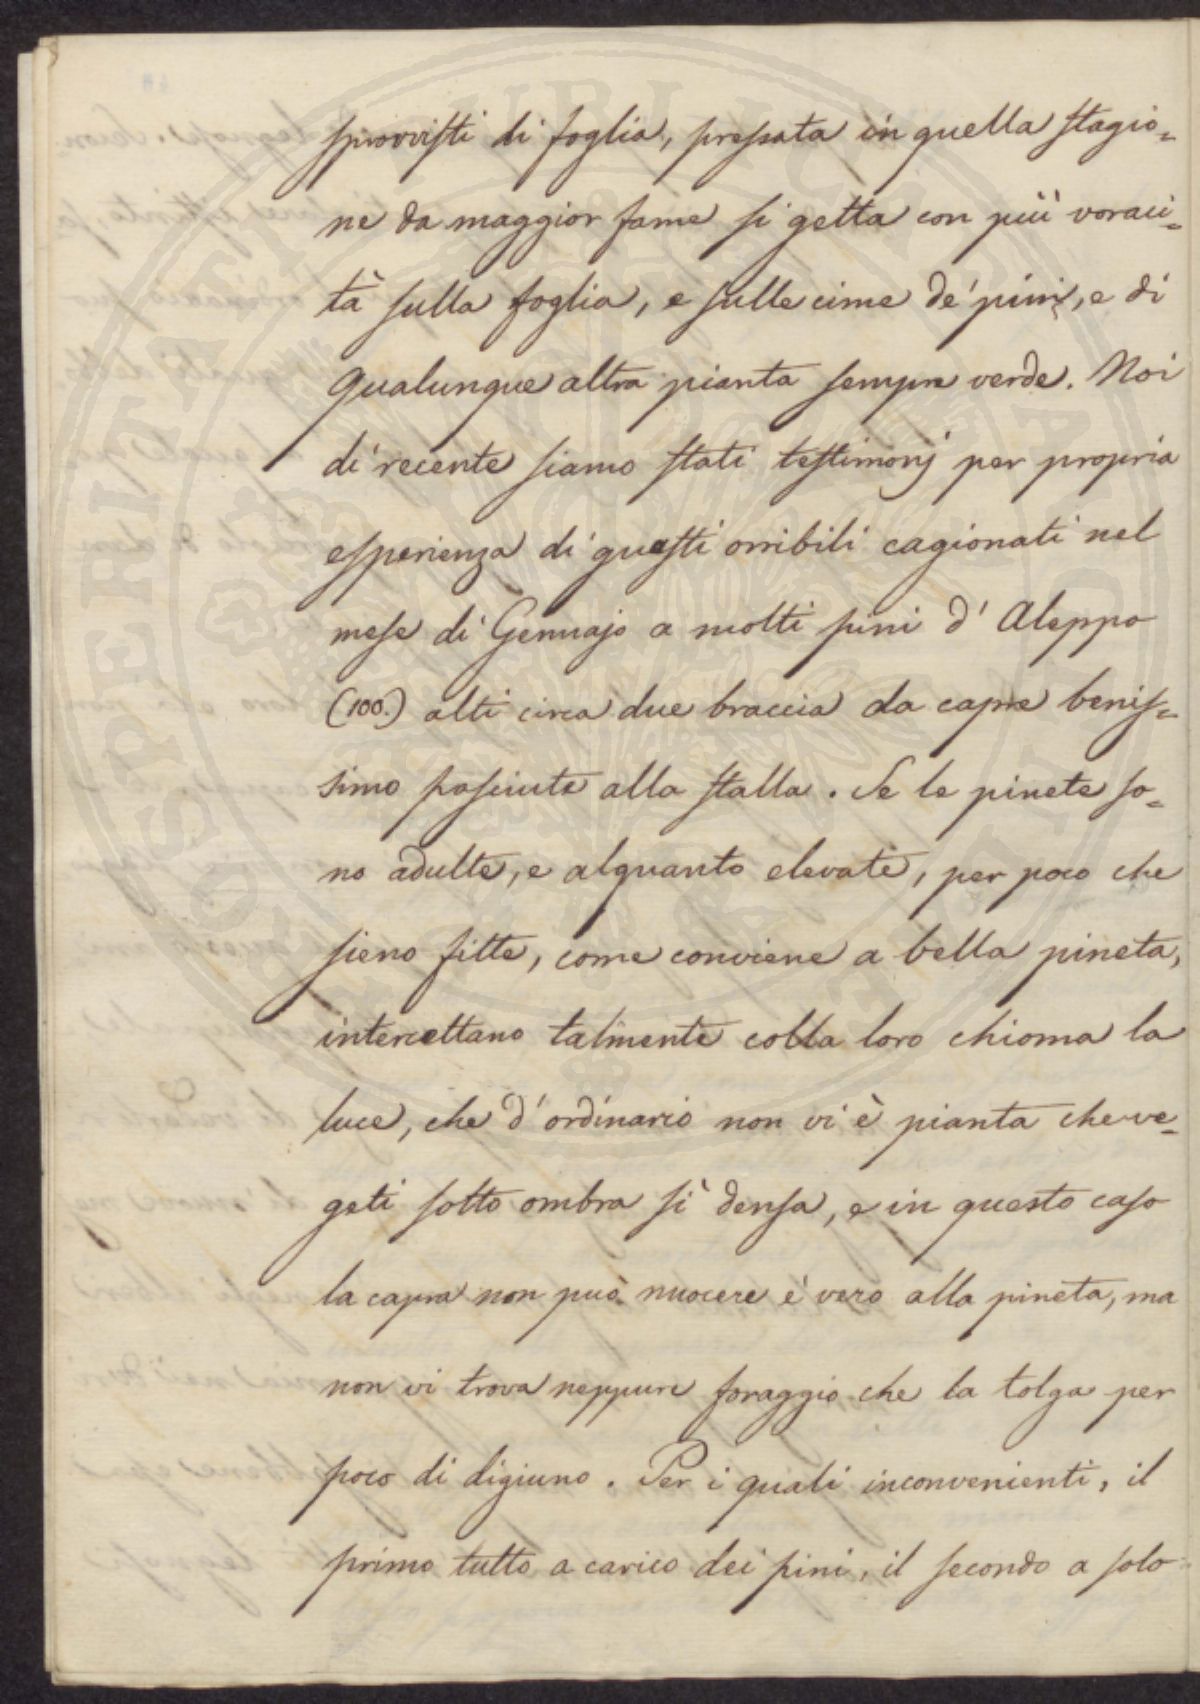 sprovvisti di foglia, pressata in quella stagio=
ne da maggior fame si getta con più voraci=
tà sulla foglia, e sulle cime de' pini, e di
qualunque altra pianta sempre verde. Noi
di recente siamo stati testimonj per propria
esperienza di guasti orribili cagionati nel
mese di Gennajo a molti pini d' Aleppo
(100.) alti circa due braccia da capre benis=
simo pasciute alla stalla. Se le pinete so=
no adulte, e alquanto elevate, per poco che
sieno fitte, come conviene a bella pineta,
intercettano talmente colla loro chioma la
luce, che d' ordinario non vi è pianta che ve=
geti sotto ombra sì densa, e in questo caso
la capra non può nuocere è vero alla pineta, ma
non vi trova neppure foraggio che la tolga per
poco di digiuno. Per i quali inconvenienti, il
primo tutto a carico dei pini, il secondo a solo